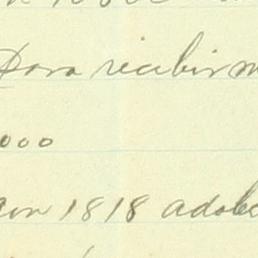 Para recibir m
000
on 1818 adobe